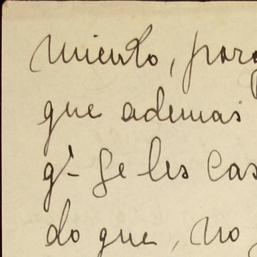 miento, para
que ademas
q'- se les cas
do que, no